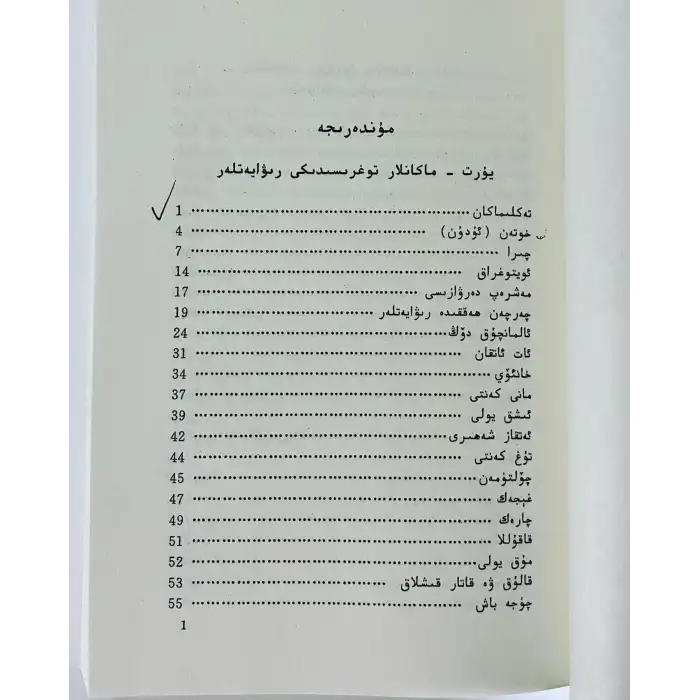 مۇندەرىجە
يۇرت - ماكانلار توغرىسىدىكى رىۋايەتلەر
تەكلىماكان ........................................ 1
خوتەن (ئۇدۇن) ........................................ 4
چىرا ........................................ 7
ئويتوغراق ........................................ 14
مەشرەپ دەرۋازىسى ........................................ 17
چەرچەن ھەققىدە رىۋايەتلەر ........................................ 19
ئالمانچۇق دۆڭ ........................................ 24
ئات ئاتقان ........................................ 31
خانئۆي ........................................ 34
مانى كەنتى ........................................ 37
ئىشق يولى ........................................ 39
ئەتقاز شەھىرى ........................................ 42
تۇغ كەنتى ........................................ 44
چۆلتۈمەن ........................................ 45
غېجەك ........................................ 47
چارەك ........................................ 49
قاقۇللا ........................................ 51
مۇق يولى ........................................ 52
قالۇق ۋە قاتار قىشلاق ........................................ 53
چۈجە باش ........................................ 55
1